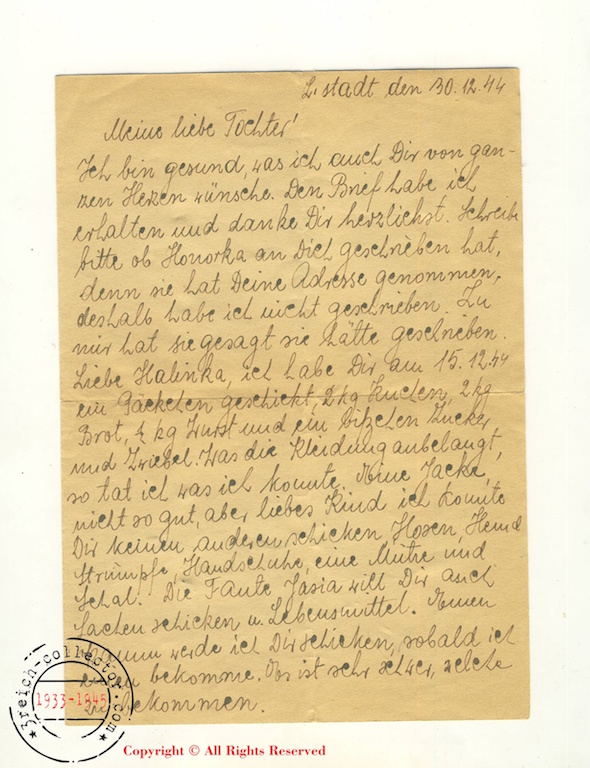 L. stadt den 30.12.44
Meine liebe Tochter!
Ich bin gesund, was ich auch Dir von gan-
zen Herzen wünsche. Den Brief habe ich
erhalten und danke Dir herzlichst. Schreibe
bitte ob Honorka an Dich geschrieben hat,
denn sie hat Deine Adresse genommen,
deshalb habe ich nicht geschrieben. Zu
mir hat sie gesagt sie hätte geschrieben.
Liebe Halinka, ich habe Dir am 15.12.44
ein Päckchen geschickt, 2 kg Kuchen, 2 kg
Brot, ½ kg Wurst und ein bißchen Zucker
und Zwiebel. Was die Kleidung anbelangt,
so tat ich was ich konnte. Jacke,
nicht so gut, aber liebes Kind ich konnte
Dir keinen anderen schicken, Hosen, Hemd
Strümpfe, Handschuhe, eine Mütze und
Schal. Die Tante Jasia will Dir auch
Sachen schicken u. Lebensmittel.
werde ich Dir schicken, sobald ich
bekomme. Es ist sehr schwer, welche
zu bekommen.
3reich-collector.com
1933-1945
Copyright © All Rights Reserved